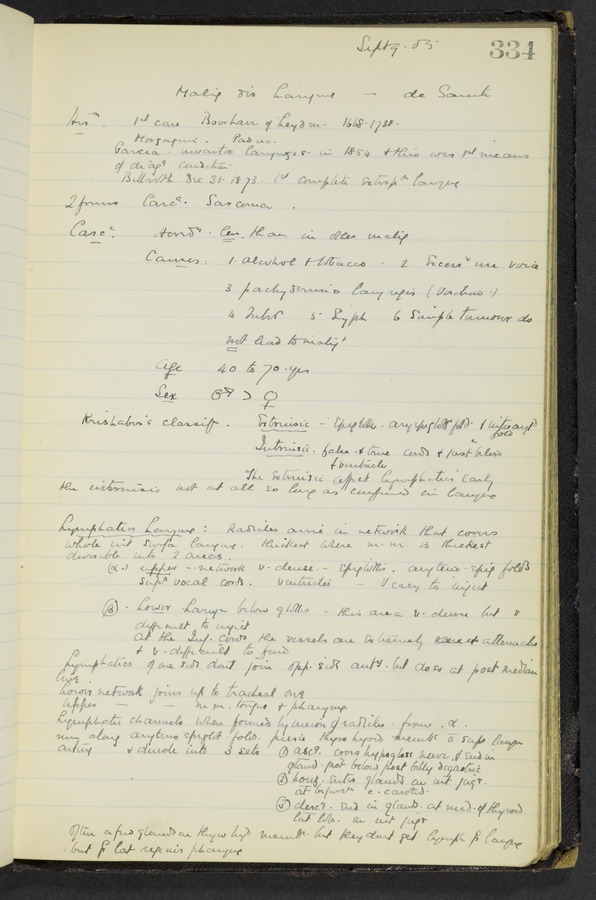 Sept 9. 05
334
Malig dis Larynx - de Santi
1st case Boerhaav of Leyden. 1668-1738.
Morgagni. Padua.
Garcia invented laryngos. in 1854 & this was 1st means
of diagn condition
Billroth Dec 31. 1873. 1st complete larynx
2 forms Carc. Sarcoma.
Carc. less than in other malig
Causes: 1. alcohol & tobacco. 2 Excessv use voice
3 pachydermia laryngis (Virchow)
4 Tubr 5 Syph 6 Simple tumours do
not lead to malig
Age 40 to 70. yrs
Sex ♂ > ♀
Krishaber's classif. Extrinsic - Epiglottis. aryepiglott fold. & interaryt
fold
Intrinsic. false & true cords & just below
& ventricle
The Extrinsic affect lymphatics early
the intrinsic not at all so long as confined in larynx
Lymphatics Larynx: Radicles arise in network that covers
whole int surface larynx. thickest where m.m. is thickest
divisible into 2 areas.
α.) upper - network v. dense. - Epiglottis. aryteno-epig folds
supr vocal cords. ventricles - v easy to inject
β. Lower Larynx below glottis - this area v. dense but v
difficult to inject
at the Inf. cords the vessels are extremely attenuated
& v. difficult to find
Lymphatics of one side dont join opp. side anty. but do so at post median
line
Lower network joins up to tracheal one
Upper — — m.m. tongue & pharynx
Lymphatic channels when formed by union of radicles from α.
run along aryteno epiglot. folds. pierce thyro hyoid membr c̄ supr laryn
artery & divide into 3 sets ① asc. cross hypogloss nerve & end in
gland just below post belly digastric
② horiz. Enter glands on int jugr.
at bifurc c. carotid.
③ desc. End in gland. at mid. of thyroid
lat lobe. on int jugr
Often a few glands on thyro hyd membr. but they dont get lymph fr larynx
but fr lat regions pharynx